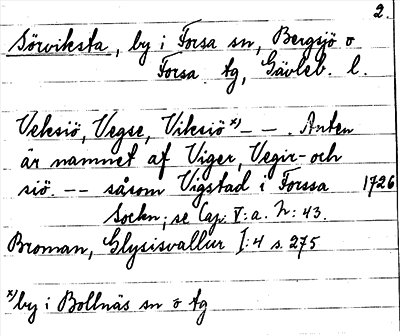 2.
Sörviksta, by i Forsa sn, Bergsjö o
Forsa tg, Gävleb. l.
Veksiö, Vegse, Viksiö x) – – . Anten
är namnet af Viger, Vegir- och
siö. -- såsom Vigstad i Forssa 1726
Sockn; se Cap. V: a. N: 43.
Broman, Glysisvallur I:4 s. 275
x) by i Bollnäs sn o tg